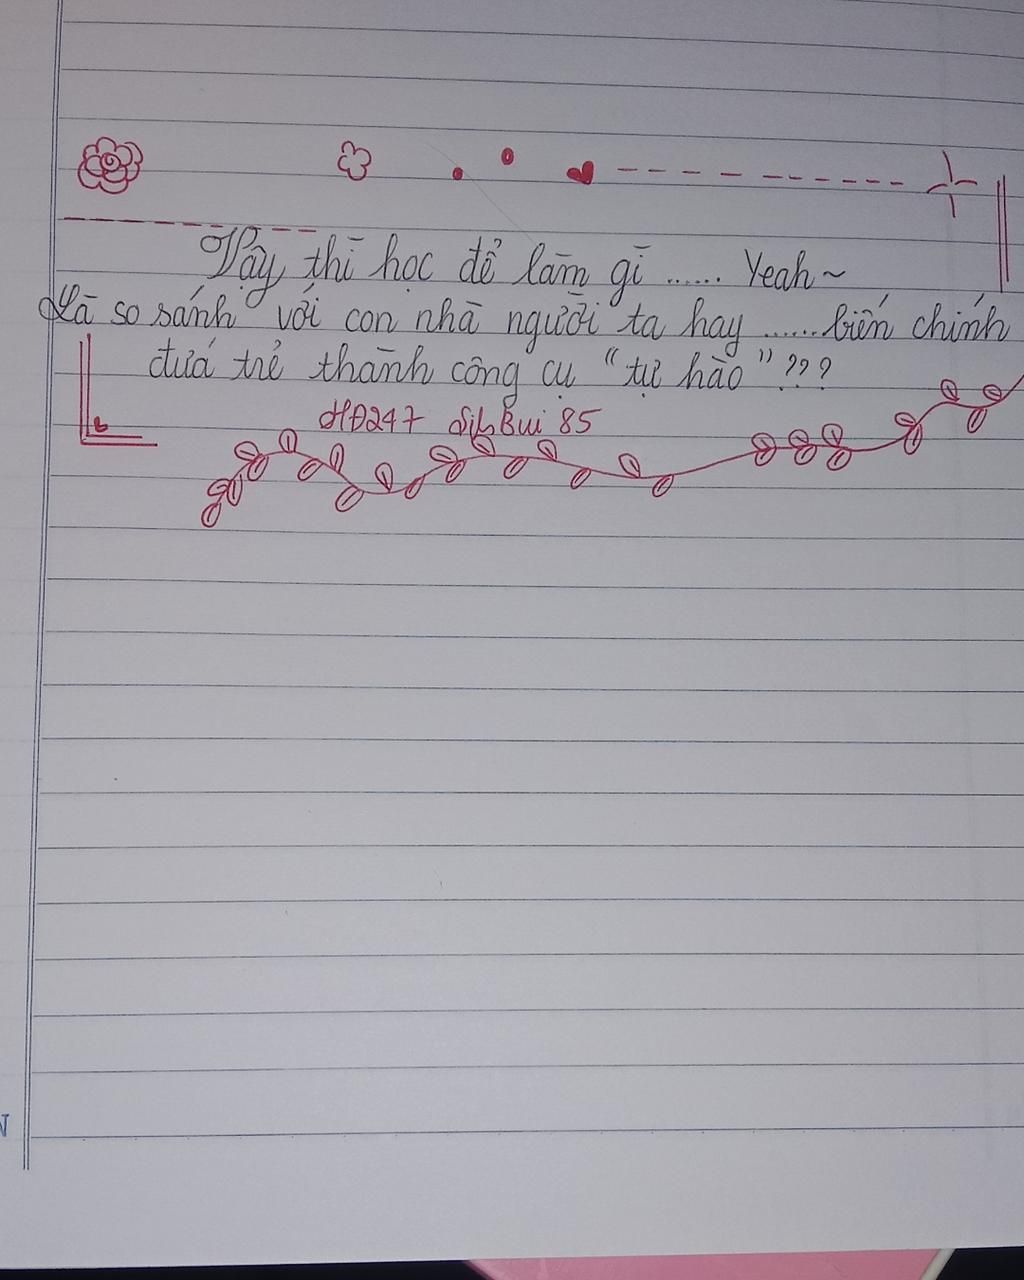 Vậy thì học để làm gì ...... Yeah~
Là so sánh với con nhà người ta hay ...... biến chính
đứa trẻ thành công cụ "tự hào" ???
HĐ247 Bui 85
N